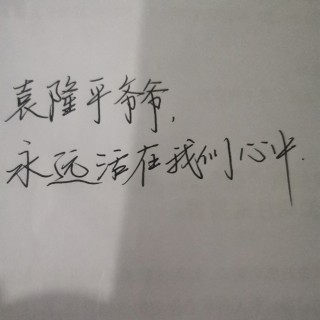 袁隆平爷爷，
永远活在我们心中.